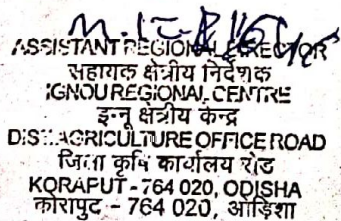 ASSISTANT REGIONAL DIRECTOR
सहायक क्षेत्रीय निर्देशक
IGNOU REGIONAL CENTRE
इग्नू क्षेत्रीय केन्द्र
DIST. AGRICULTURE OFFICE ROAD
जिला कृषि कार्यालय रोड
KORAPUT - 764 020, ODISHA
कोरापुट - 764 020, ओड़िशा